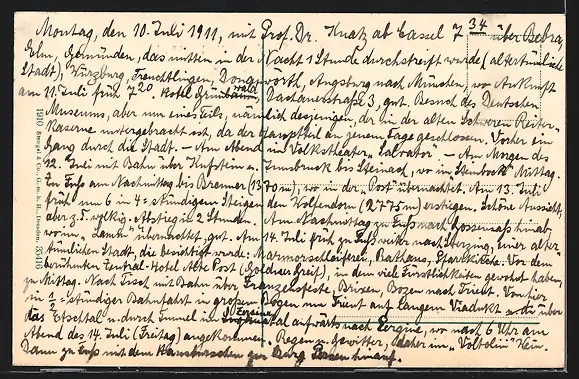 Montag, den 10. Juli 1911, mit Prof. Dr. Knatz ab Cassel 7 34 über Bebra,
Elm, Gemünden, das mitten in der Nacht 1 Stunde durchstreift wurde (altertümliche
Stadt), Würzburg, Treuchtlingen, Donauwörth, Augsburg nach München, wo Ankunft
am 11. Juli früh 7 20. Hotel Grünwald, Dachauerstraße 3, gut. Besuch des Deutschen
Museums, aber nur eines Teils, nämlich desjenigen, der in der alten Schweren Reiter-
Kaserne untergebracht ist, da der Hauptteil an jenem Tage geschlossen. Vorher ein
Gang durch die Stadt. – Am Abend in Volkstheater "Salvator". – Am Morgen des
12. Juli mit Bahn über Kufstein u. Innsbruck bis Steinach, wo im "Steinbock" Mittag.
Zu Fuß am Nachmittag bis Brenner (1370 m), wo in der "Post" übernachtet. Am 13. Juli
früh um 6 in 4 stündigem Steigen den Wolfendorn (2775 m) erstiegen. Schöne Aussicht,
aber z. T. wolkig. Abstieg in 2 Stunden. Am Nachmittag zu Fuß nach Gossensaß hinab,
wo im "Lamm" übernachtet, gut. Am 14. Juli früh zu Fuß weiter nach Sterzing, einer alter-
tümlichen Stadt, die besichtigt wurde: Marmorschleiferei, Rathaus, Pfarrkirche. Vor dem
berühmten Central-Hotel Alte Post (Goldner Greif), in dem viel Fürstlichkeiten gewohnt haben,
zu Mittag. Nach Tisch mit Bahn über Franzensfeste, Brixen, Bozen nach Trient. Von hier
in 1 stündiger Bahnfahrt in großem Bogen um Trient auf langem Viadukt über
das Etschtal u. durch Tunnel im Ferzenatal aufwärts nach Pergine, wo nach 6 Uhr am
Abend des 14. Juli (Freitag) angekommen. Regen u. Gewitter, daher im "Voltolini" Wein.
Dann zu Fuß mit dem Hausburschen zur Burg Persen hinauf.
1910 Stengel & Co., G. m. b. H., Dresden. 35416